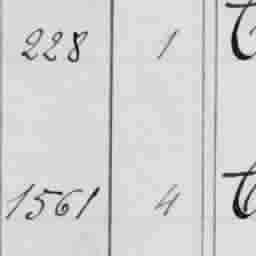 228 1
1561 4